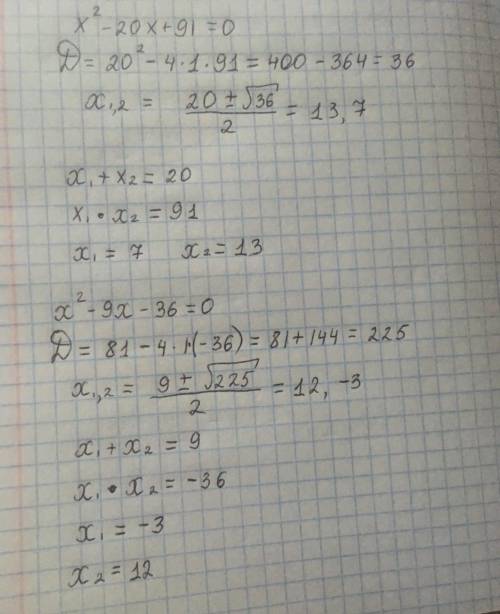 x² - 20x + 91 = 0
D = 20² - 4 · 1 · 91 = 400 - 364 = 36
x₁,₂ = (20 ± √36) / 2 = 13, 7
x₁ + x₂ = 20
x₁ · x₂ = 91
x₁ = 7 x₂ = 13
x² - 9x - 36 = 0
D = 81 - 4 · 1·(-36) = 81 + 144 = 225
x₁,₂ = (9 ± √225) / 2 = 12, -3
x₁ + x₂ = 9
x₁ · x₂ = -36
x₁ = -3
x₂ = 12